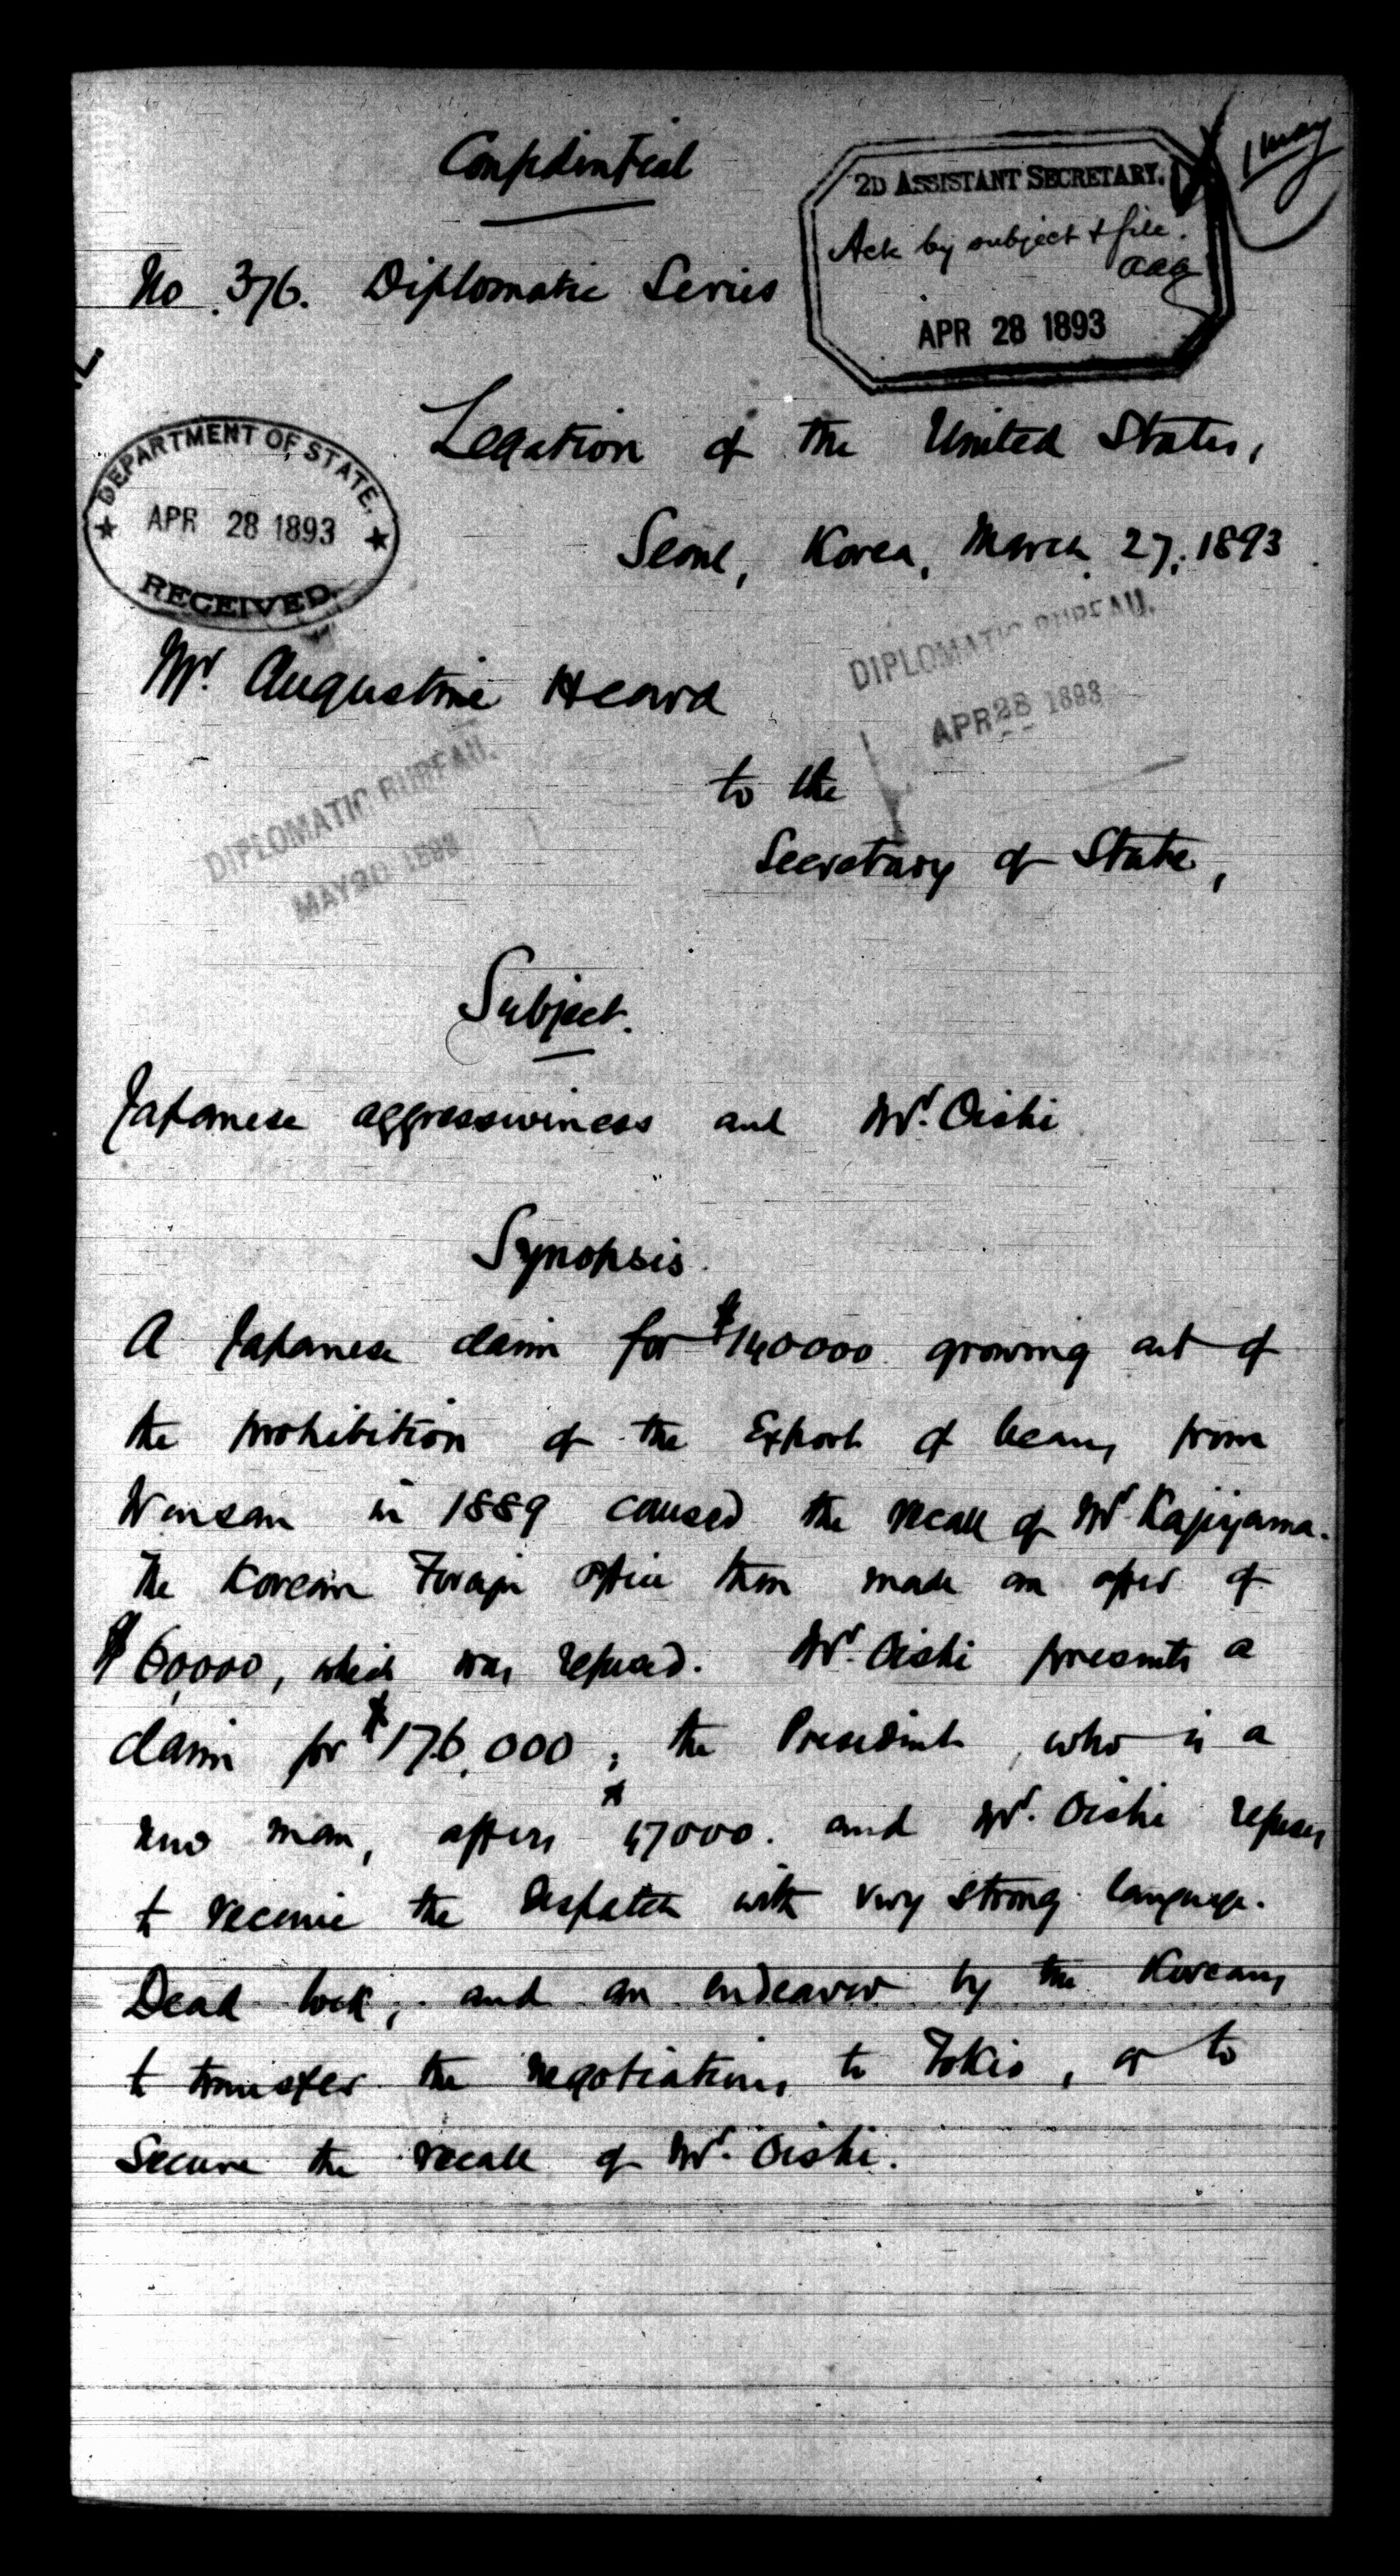 Confidential
1 May
2D ASSISTANT SECRETARY.
Ack by subject & file.
aaa
APR 28 1893
No. 376. Diplomatic Series
DEPARTMENT OF STATE.
APR 28 1893
RECEIVED.
Legation of the United States,
Seoul, Korea, March 27, 1893
DIPLOMATIC BUREAU.
APR 28 1893
Mr. Augustine Heard
DIPLOMATIC BUREAU.
MAY 20 1893
to the
Secretary of State,
Subject.
Japanese aggressiveness and Mr. Oishi
Synopsis.
A Japanese claim for $140000 growing out of
the prohibition of the Export of beans from
Wonsan in 1889 caused the recall of Mr Kajiyama.
The Korean Foreign Office then made an offer of
$60,000, which was refused. Mr. Oishi presents a
claim for $176,000; the President, who is a
new man, offers $47000. and Mr. Oishi refuses
to receive the Despatch with very strong language.
Dead lock, and an endeavor by the Koreans
to transfer the negotiations to Tokio, or to
Secure the recall of Mr. Oishi.